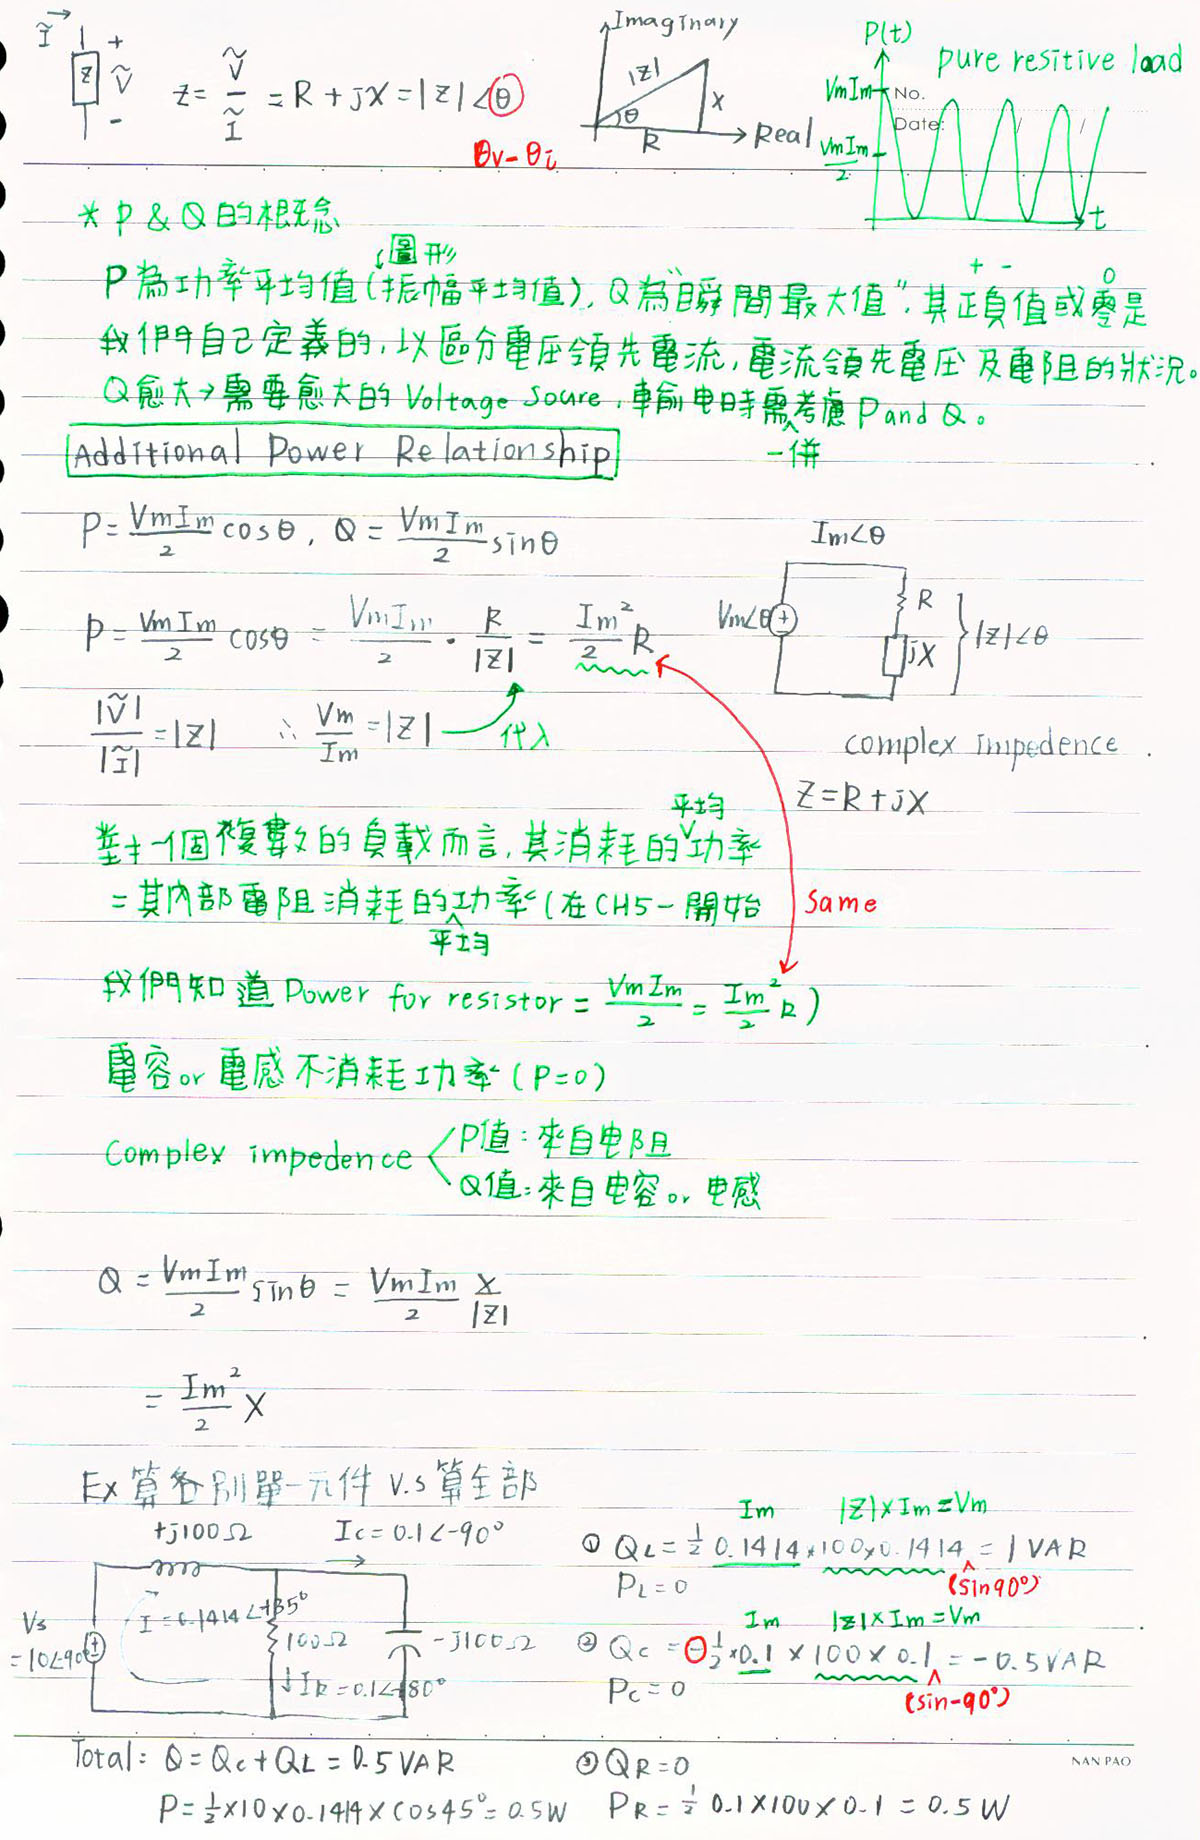 Ĩ + Ṽ - Z
Z = Ṽ/Ĩ = R + jX = |Z|∠θ
θv-θi
Imaginary
|Z| X
θ
R Real
P(t) pure resitive load
VmIm
VmIm/2
t
No.
Date: / /
* P & Q 的概念
圖形 + - 0
P為功率平均值(振幅平均值), Q為"瞬間最大值", 其正負值或零是
我們自己定義的, 以區分電壓領先電流, 電流領先電壓及電阻的狀況。
Q愈大→需要愈大的 Voltage Soure, 輸电時需考慮 P and Q。
一併
Additional Power Relationship
P = VmIm/2 cosθ, Q = VmIm/2 sinθ
Im∠θ
P = VmIm/2 cosθ = VmIm/2 · R/|Z| = Im²/2 R
Vm∠θ + R jX |Z|∠θ
|Ṽ|/|Ĩ| = |Z| ∴ Vm/Im = |Z| 代入
complex impedence
Z = R + jX
平均
對一個複數的負載而言, 其消耗的功率
= 其內部電阻消耗的功率 (在CH5一開始
平均
same
我們知道 Power for resistor = VmIm/2 = Im²/2 R )
電容 or 電感不消耗功率 (P=0)
Complex impedence
P值: 來自电阻
Q值: 來自电容 or 电感
Q = VmIm/2 sinθ = VmIm/2 X/|Z|
= Im²/2 X
Ex 算各別單一元件 V.S 算全部
+j100Ω Ic = 0.1∠-90°
Vs = 10∠90°
I = 0.1414∠135°
100Ω -j100Ω
IR = 0.1∠180°
Im |Z|×Im=Vm
① QL = 1/2 0.1414×100×0.1414 = 1 VAR
(sin90°)
PL = 0
Im |Z|×Im=Vm
② Qc = -1/2×0.1×100×0.1 = -0.5 VAR
(sin-90°)
Pc = 0
Total: Q = Qc + QL = 0.5 VAR
P = 1/2×10×0.1414×cos45° = 0.5W
③ QR = 0
PR = 1/2 0.1×100×0.1 = 0.5 W
NAN PAO